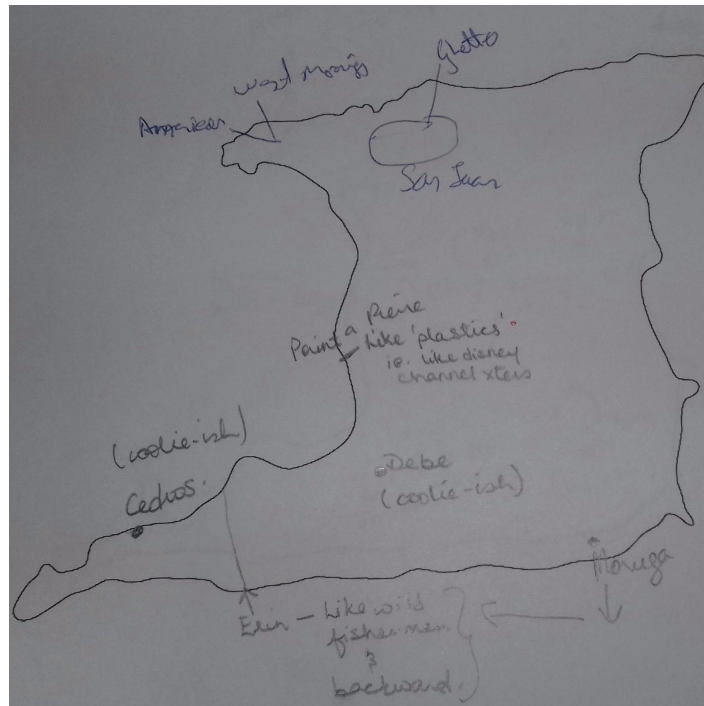 West Moorings
American
Ghetto
San Juan
Point a Pierre
Like 'plastics'.
ie. like disney
channel xters
(coolie-ish)
Cedros.
Debe
(coolie-ish)
Moruga
Erin – Like wild
fishermen
&
backward.